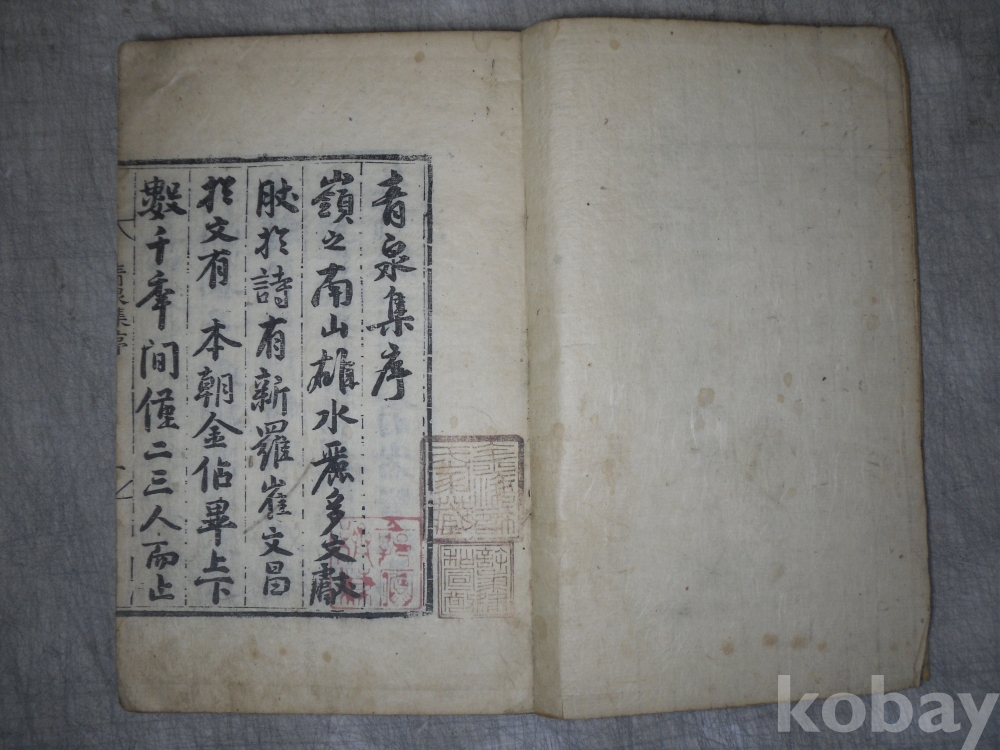 青泉集序
嶺之南山雄水麗多文獻
肰於詩有新羅崔文昌
於文有 本朝金佔畢上下
數千年間僅二三人而止
青泉集序
kobay